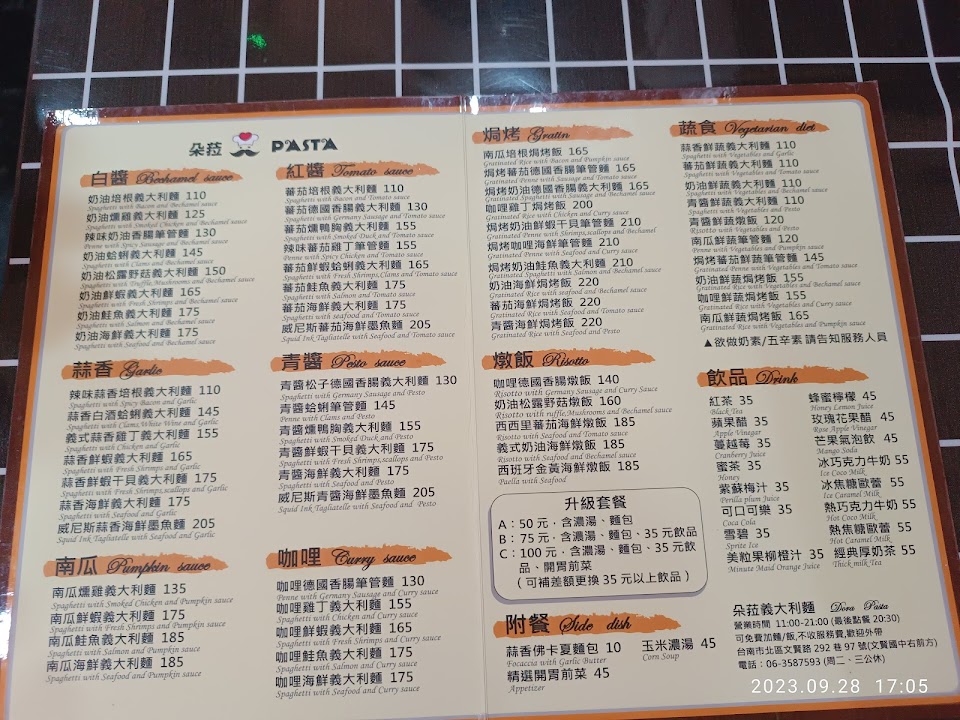 朵菈 PASTA
白醬 Bechamel sauce
奶油培根義大利麵 110
Spaghetti with Bacon and Bechamel sauce
奶油燻雞義大利麵 125
Spaghetti with Smoked Chicken and Bechamel sauce
辣味奶油香腸筆管麵 130
Penne with Spicy Sausage and Bechamel sauce
奶油蛤蜊義大利麵 145
Spaghetti with Clams and Bechamel sauce
奶油松露野菇義大利麵 150
Spaghetti with Truffle,Mushrooms and Bechamel sauce
奶油鮮蝦義大利麵 165
Spaghetti with Fresh Shrimps and Bechamel sauce
奶油鮭魚義大利麵 175
Spaghetti with Salmon and Bechamel sauce
奶油海鮮義大利麵 175
Spaghetti with Seafood and Bechamel sauce
蒜香 Garlic
辣味蒜香培根義大利麵 110
Spaghetti with Spicy Bacon and Garlic
蒜香白酒蛤蜊義大利麵 145
Spaghetti with Clams,White Wine and Garlic
義式蒜香雞丁義大利麵 155
Spaghetti with Chicken and Garlic
蒜香鮮蝦義大利麵 165
Spaghetti with Fresh Shrimps and Garlic
蒜香鮮蝦干貝義大利麵 175
Spaghetti with Fresh Shrimps,scallops and Garlic
蒜香海鮮義大利麵 175
Spaghetti with Seafood and Garlic
威尼斯蒜香海鮮墨魚麵 205
Squid Ink Tagliatelle with Seafood and Garlic
南瓜 Pumpkin sauce
南瓜燻雞義大利麵 135
Spaghetti with Smoked Chicken and Pumpkin sauce
南瓜鮮蝦義大利麵 175
Spaghetti with Fresh Shrimps and Pumpkin sauce
南瓜鮭魚義大利麵 185
Spaghetti with Salmon and Pumpkin sauce
南瓜海鮮義大利麵 185
Spaghetti with Seafood and Pumpkin sauce
紅醬 Tomato sauce
蕃茄培根義大利麵 110
Spaghetti with Bacon and Tomato sauce
蕃茄德國香腸義大利麵 130
Spaghetti with Germany Sausage and Tomato sauce
蕃茄燻鴨胸義大利麵 155
Spaghetti with Smoked Duck and Tomato sauce
辣味蕃茄雞丁筆管麵 155
Penne with Spicy Chicken and Tomato sauce
蕃茄鮮蝦蛤蜊義大利麵 165
Spaghetti with Fresh Shrimps,Clams and Tomato sauce
蕃茄鮭魚義大利麵 175
Spaghetti with Salmon and Tomato sauce
蕃茄海鮮義大利麵 175
Spaghetti with Seafood and Tomato sauce
威尼斯蕃茄海鮮墨魚麵 205
Squid Ink Tagliatelle with Seafood and Tomato sauce
青醬 Pesto sauce
青醬松子德國香腸義大利麵 130
Spaghetti with Germany Sausage and Pesto
青醬蛤蜊筆管麵 145
Penne with Clams and Pesto
青醬燻鴨胸義大利麵 155
Spaghetti with Smoked Duck and Pesto
青醬鮮蝦干貝義大利麵 175
Spaghetti with Fresh Shrimps,scallops and Pesto
青醬海鮮義大利麵 175
Spaghetti with Seafood and Pesto
威尼斯青醬海鮮墨魚麵 205
Squid Ink Tagliatelle with Seafood and Pesto
咖哩 Curry sauce
咖哩德國香腸筆管麵 130
Penne with Germany Sausage and Curry sauce
咖哩雞丁義大利麵 155
Spaghetti with Chicken and Curry sauce
咖哩鮮蝦義大利麵 165
Spaghetti with Fresh Shrimps and Curry sauce
咖哩鮭魚義大利麵 175
Spaghetti with Salmon and Curry sauce
咖哩海鮮義大利麵 175
Spaghetti with Seafood and Curry sauce
焗烤 Gratin
南瓜培根焗烤飯 165
Gratinated Rice with Bacon and Pumpkin sauce
焗烤蕃茄德國香腸筆管麵 165
Gratinated Penne with Sausage and Tomato sauce
焗烤奶油德國香腸義大利麵 165
Gratinated Spaghetti with Sausage and Bechamel sauce
咖哩雞丁焗烤飯 200
Gratinated Rice with Chicken and Curry sauce
焗烤奶油鮮蝦干貝筆管麵 210
Gratinated Penne with Shrimps,scallops and Bechamel
焗烤咖哩海鮮筆管麵 210
Gratinated Penne with Seafood and Curry sauce
焗烤奶油鮭魚義大利麵 210
Gratinated Spaghetti with Salmon and Bechamel sauce
奶油海鮮焗烤飯 220
Gratinated Rice with Seafood and Bechamel sauce
蕃茄海鮮焗烤飯 220
Gratinated Rice with seafood and Tomato sauce
青醬海鮮焗烤飯 220
Gratinated Rice with Seafood and Pesto
燉飯 Risotto
咖哩德國香腸燉飯 140
Risotto with Germany Sausage and Curry Sauce
奶油松露野菇燉飯 160
Risotto with ruffle,Mushrooms and Bechamel sauce
西西里蕃茄海鮮燉飯 185
Risotto with Seafood and Tomato sauce
義式奶油海鮮燉飯 185
Risotto with Seafood and Bechamel sauce
西班牙金黃海鮮燉飯 185
Paella with Seafood
升級套餐
A：50 元，含濃湯、麵包
B：75 元，含濃湯、麵包、35 元飲品
C：100 元，含濃湯、麵包、35 元飲
品、開胃前菜
（可補差額更換 35 元以上飲品）
附餐 Side dish
蒜香佛卡夏麵包 10 玉米濃湯 45
Focaccia with Garlic Butter Corn Soup
精選開胃前菜 45
Appetizer
蔬食 Vegetarian diet
蒜香鮮蔬義大利麵 110
Spaghetti with Vegetables and Garlic
蕃茄鮮蔬義大利麵 110
Spaghetti with Vegetables and Tomato sauce
奶油鮮蔬義大利麵 110
Spaghetti with Vegetables and Bechamel sauce
青醬鮮蔬義大利麵 110
Spaghetti with Vegetables and Pesto
青醬鮮蔬燉飯 120
Risotto with Vegetables and Pesto
南瓜鮮蔬筆管麵 120
Penne with Vegetables and Pumpkin sauce
焗烤蕃茄鮮蔬筆管麵 145
Gratinated Penne with Vegetables and Tomato sauce
奶油鮮蔬焗烤飯 155
Gratinated Rice with Vegetables and Bechamel sauce
咖哩鮮蔬焗烤飯 155
Gratinated Rice with Vegetables and Curry sauce
南瓜鮮蔬焗烤飯 165
Gratinated Rice with Vegetables and Pumpkin sauce
▲欲做奶素/五辛素 請告知服務人員
飲品 Drink
紅茶 35 蜂蜜檸檬 45
Black Tea Honey Lemon Juice
蘋果醋 35 玫瑰花果醋 45
Apple Vinegar Rose Apple Vinegar
蔓越莓 35 芒果氣泡飲 45
Cranberry Juice Mango Soda
蜜茶 35 冰巧克力牛奶 55
Honey Ice Coco Milk
紫蘇梅汁 35 冰焦糖歐蕾 55
Perilla plum Juice Ice Caramel Milk
可口可樂 35 熱巧克力牛奶 55
Coca Cola Hot Coco Milk
雪碧 35 熱焦糖歐蕾 55
Sprite Ice Hot Caramel Milk
美粒果柳橙汁 35 經典厚奶茶 55
Minute Maid Orange Juice Thick milk Tea
朵菈義大利麵 Dora Pasta
營業時間 11:00-21:00 (最後點餐 20:30)
可免費加麵/飯,不收服務費,歡迎外帶
台南市北區文賢路 292 巷 97 號(文賢國中右前方)
電話：06-3587593 (周二、三公休)
2023.09.28 17:05